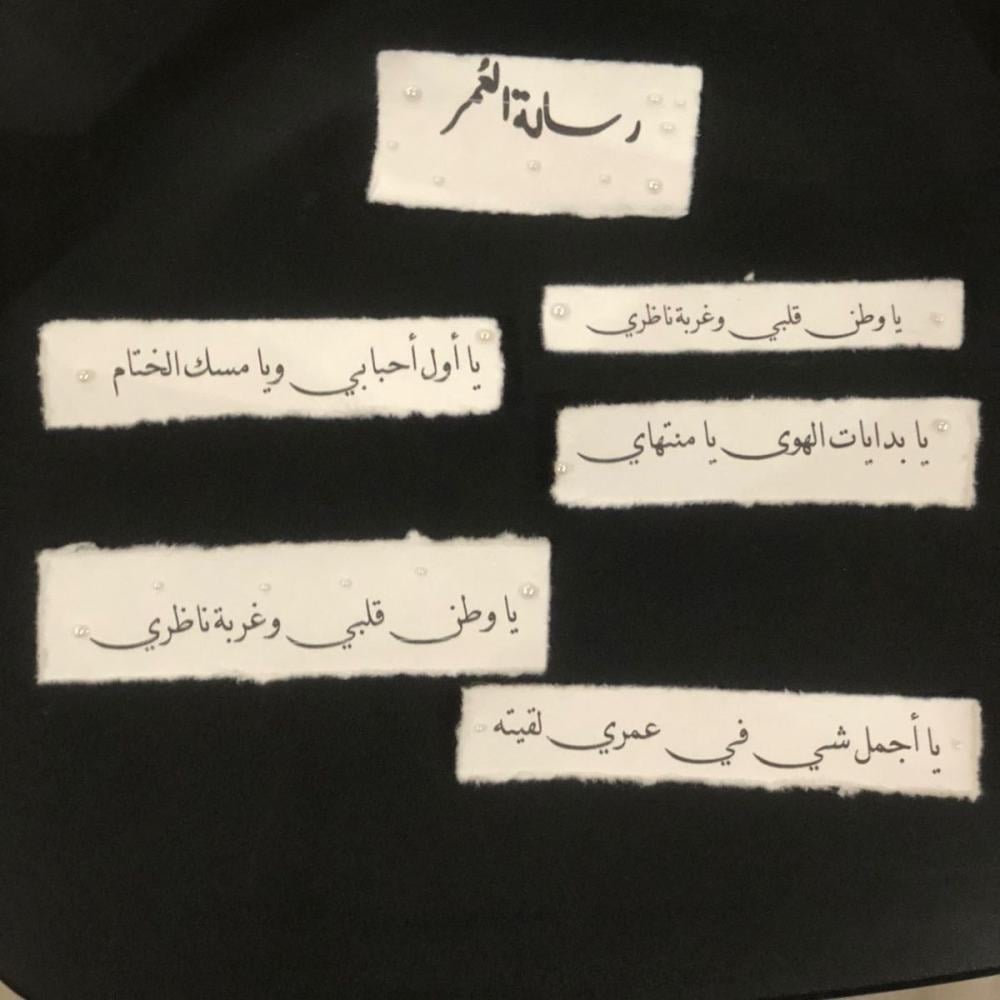 رسالة العُمر
يا وطن قلبي وغربة ناظري
يا أول أحبابي ويا مسك الختام
يا بدايات الهوى يا منتهاي
يا وطن قلبي وغربة ناظري
يا أجمل شي في عمري لقيته